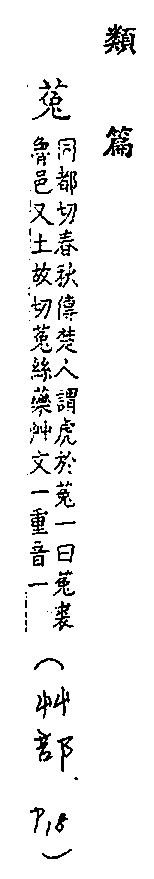 類篇
菟
同都切春秋傳楚人謂虎於菟一曰菟裘
魯邑又土故切菟絲藥艸文一重音一
(艸部.
P,18)